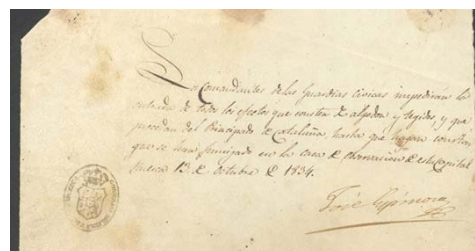 Los Comandantes de las Guardias Civicas impediran la
entrada de todos los efectos que constan de algodon y tegidos, y que
procedan del Principado de Cataluña, hasta que hagan constar
que se han fumigado en la casa de observacion de esta Capital
Huesca 13 de Octubre de 1834.
José